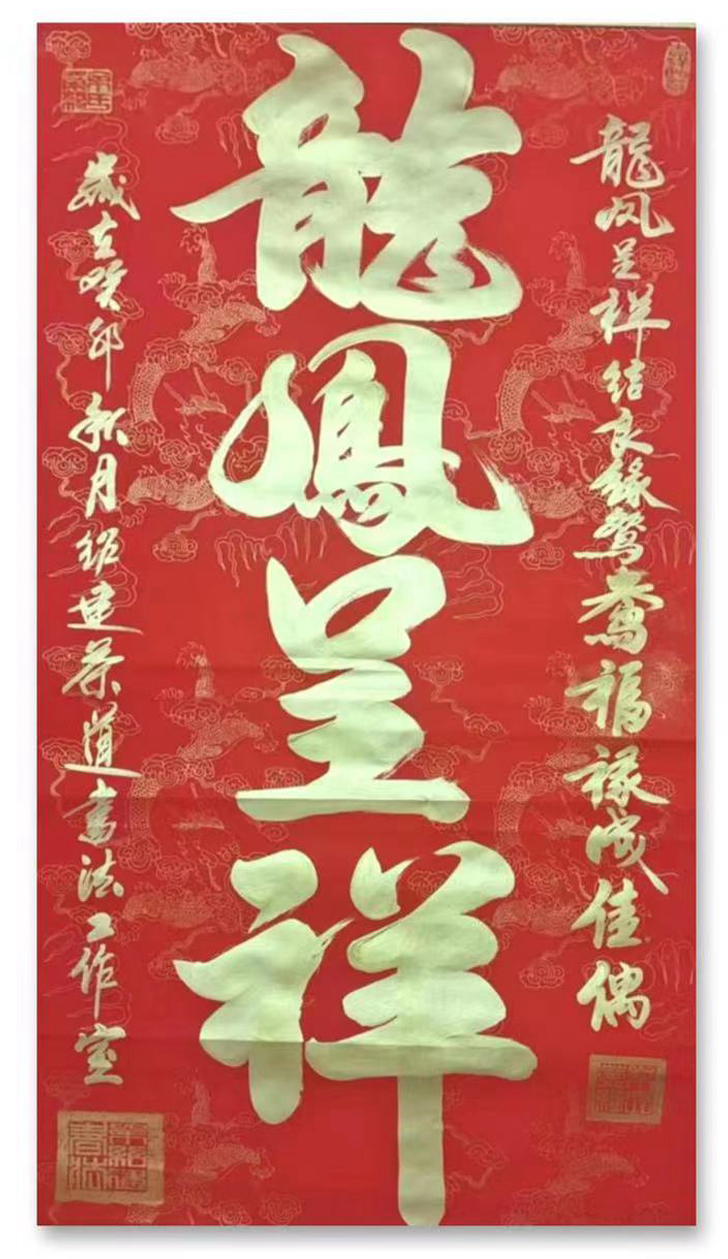 龍凤呈祥结良缘鸳鸯福禄成佳偶
龍鳳呈祥
歲在癸卯秋月绍建茶道書法工作室